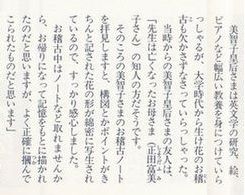 美智子皇后さまは英文学の研究、絵、
ピアノなど幅広い教養を身につけていら
っしゃるが、大学時代から生け花のお稽
古もなかさずなさっていらっしゃった。
当時から美智子皇后さまの友人は、
「先生は亡くなったお母さま（正田富美
子さん）の知人の方だそうです。
そのころの美智子さまのお稽古ノート
を拝見しますと、構図とかポイントがき
ちんと記された花の形が綿密に写生され
ているので、すっかり感心しました。
お稽古中はノートなど取れませんか
ら、お帰りになって記憶をもとに描かれ
たのだと思いますが、よく正確に掴んで
こられたものだと思います」